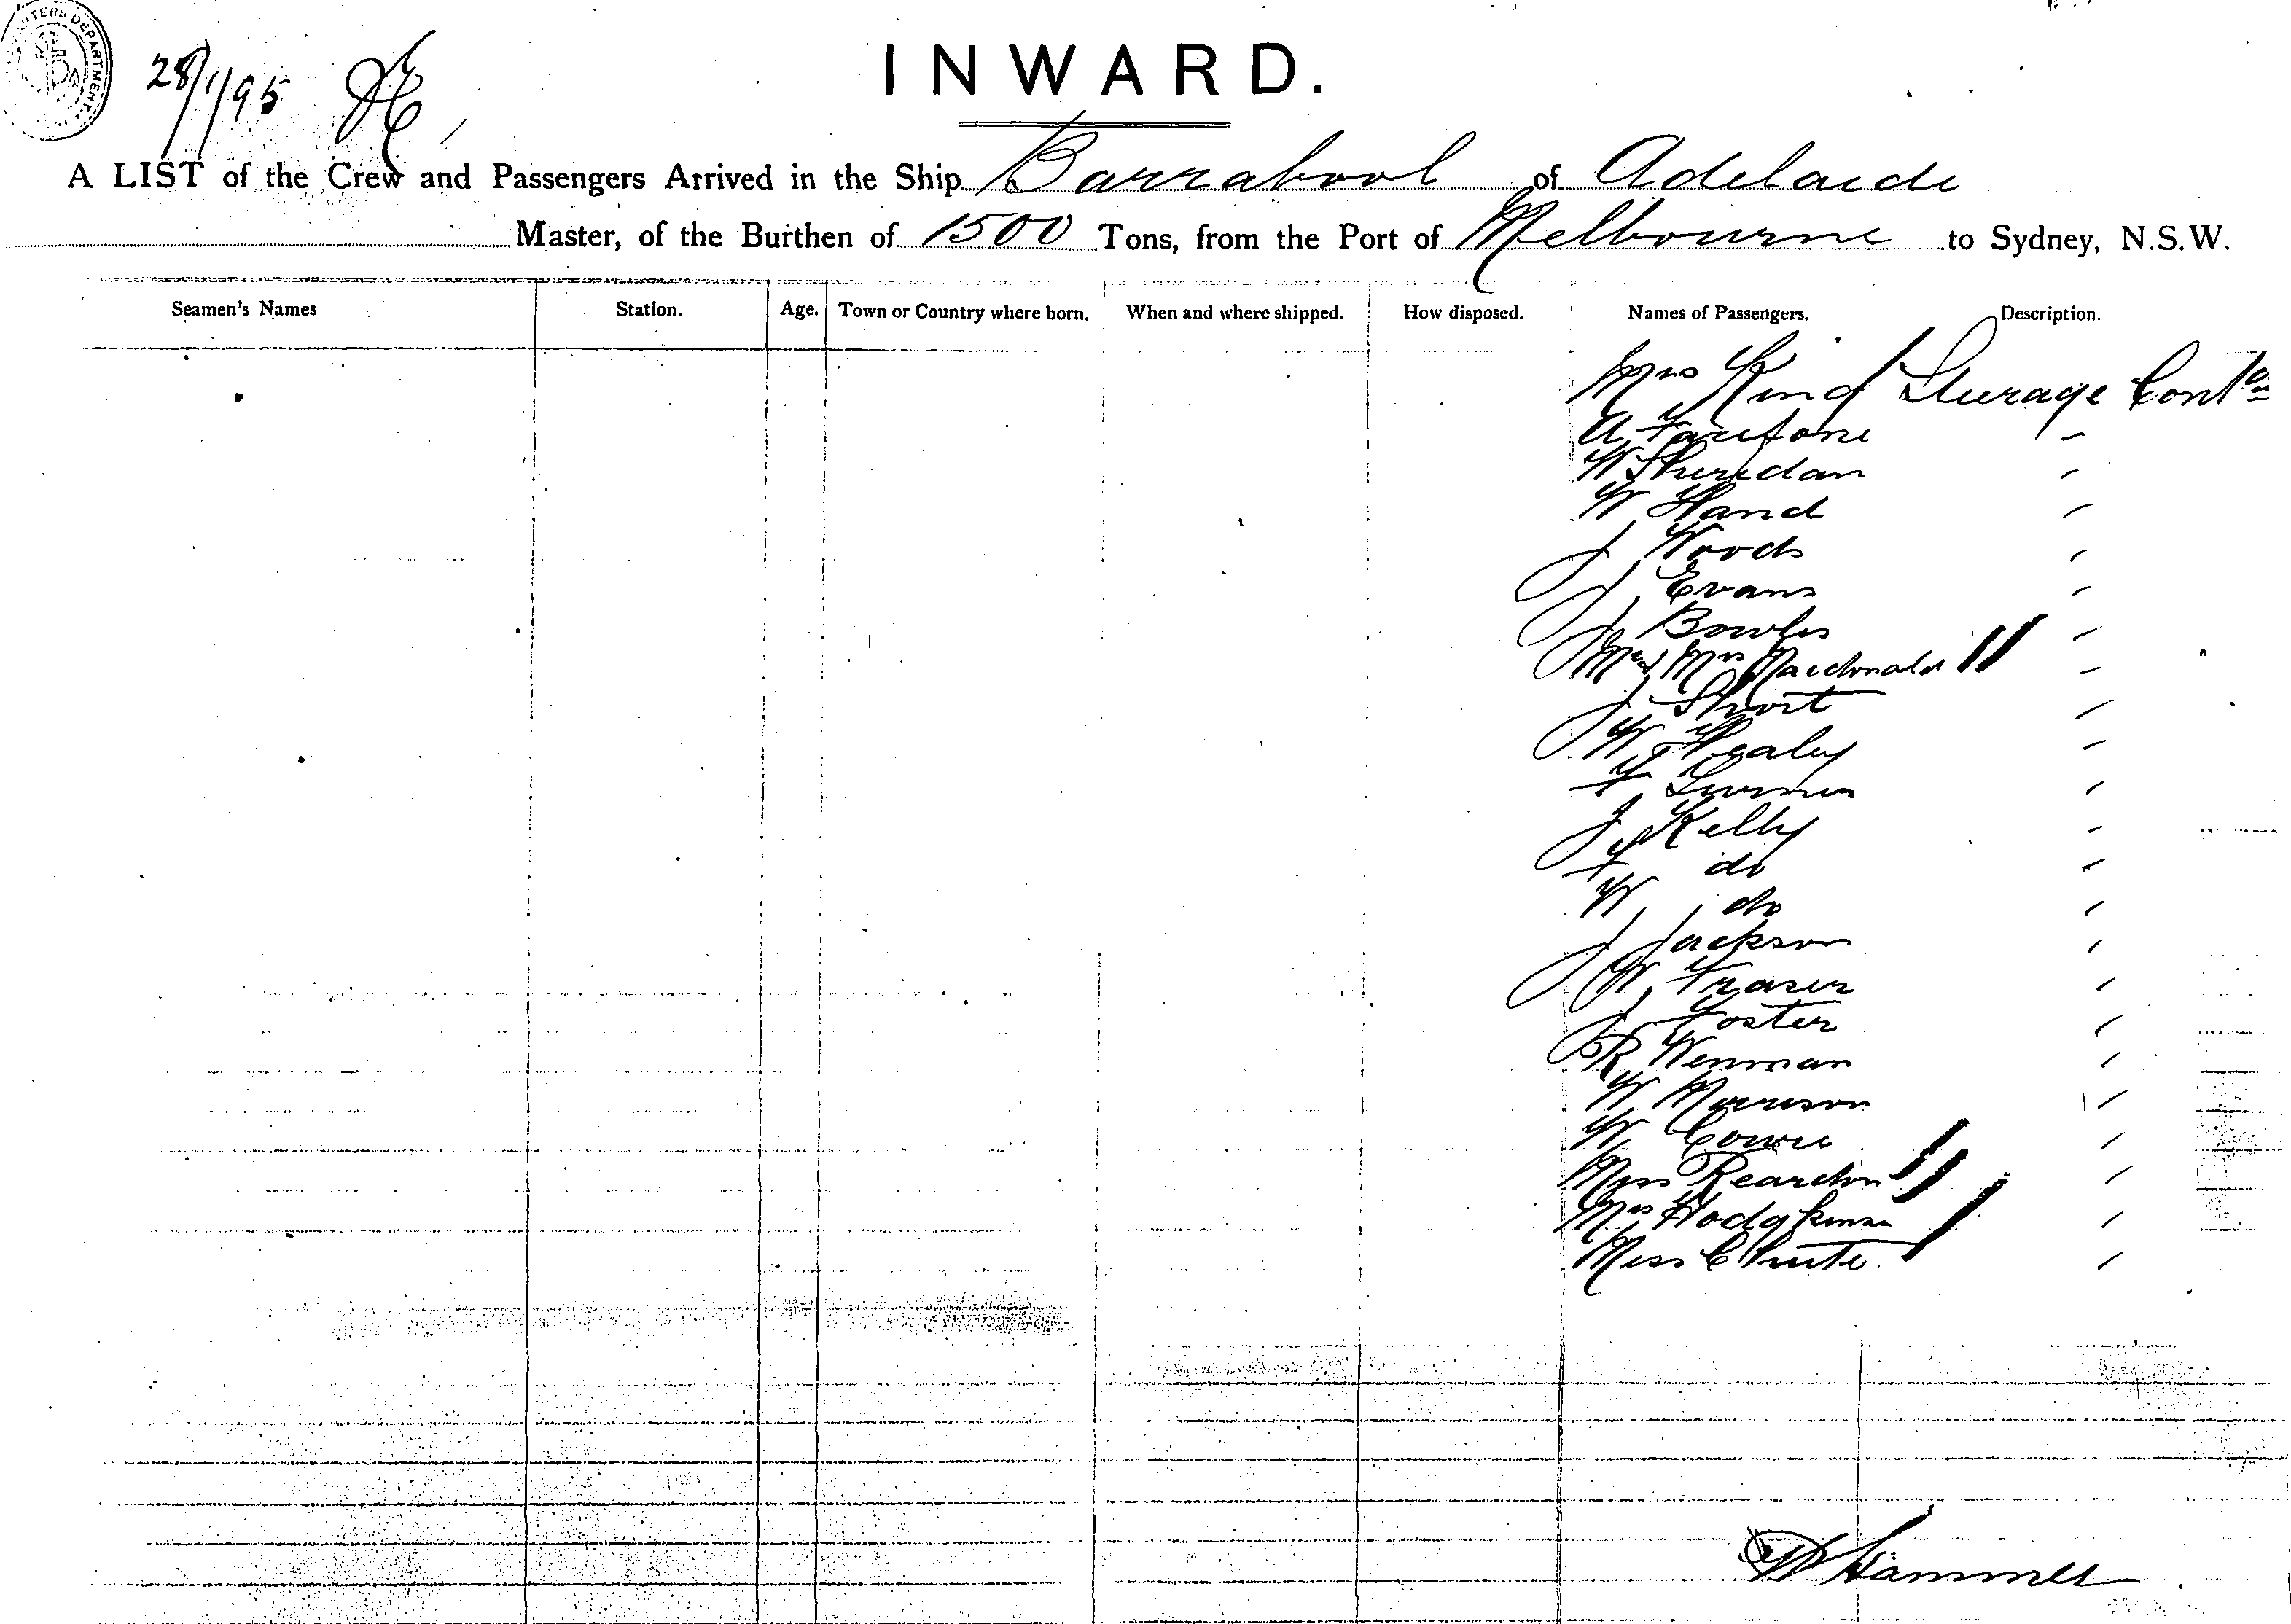 28/1/95
INWARD.
A LIST of the Crew and Passengers Arrived in the Ship Barrabool of Adelaide
Master, of the Burthen of 1500 Tons, from the Port of Melbourne to Sydney, N.S.W.
Seamen's Names Station. Age. Town or Country where born. When and where shipped. How disposed. Names of Passengers. Description.
Mrs King Steerage Contd
A
W Sheridan "
W Hand "
J Woods "
J Evans "
J Bowles "
Mr & Mrs Macdonald "
J Short "
W Healey "
F "
J Kelly "
F do "
W do "
J Jackson "
W Fraser "
J Foster "
R Wenman "
W Morrison "
W Cowie "
Miss Reardon "
Mrs Hodgkinson "
Miss Chute "